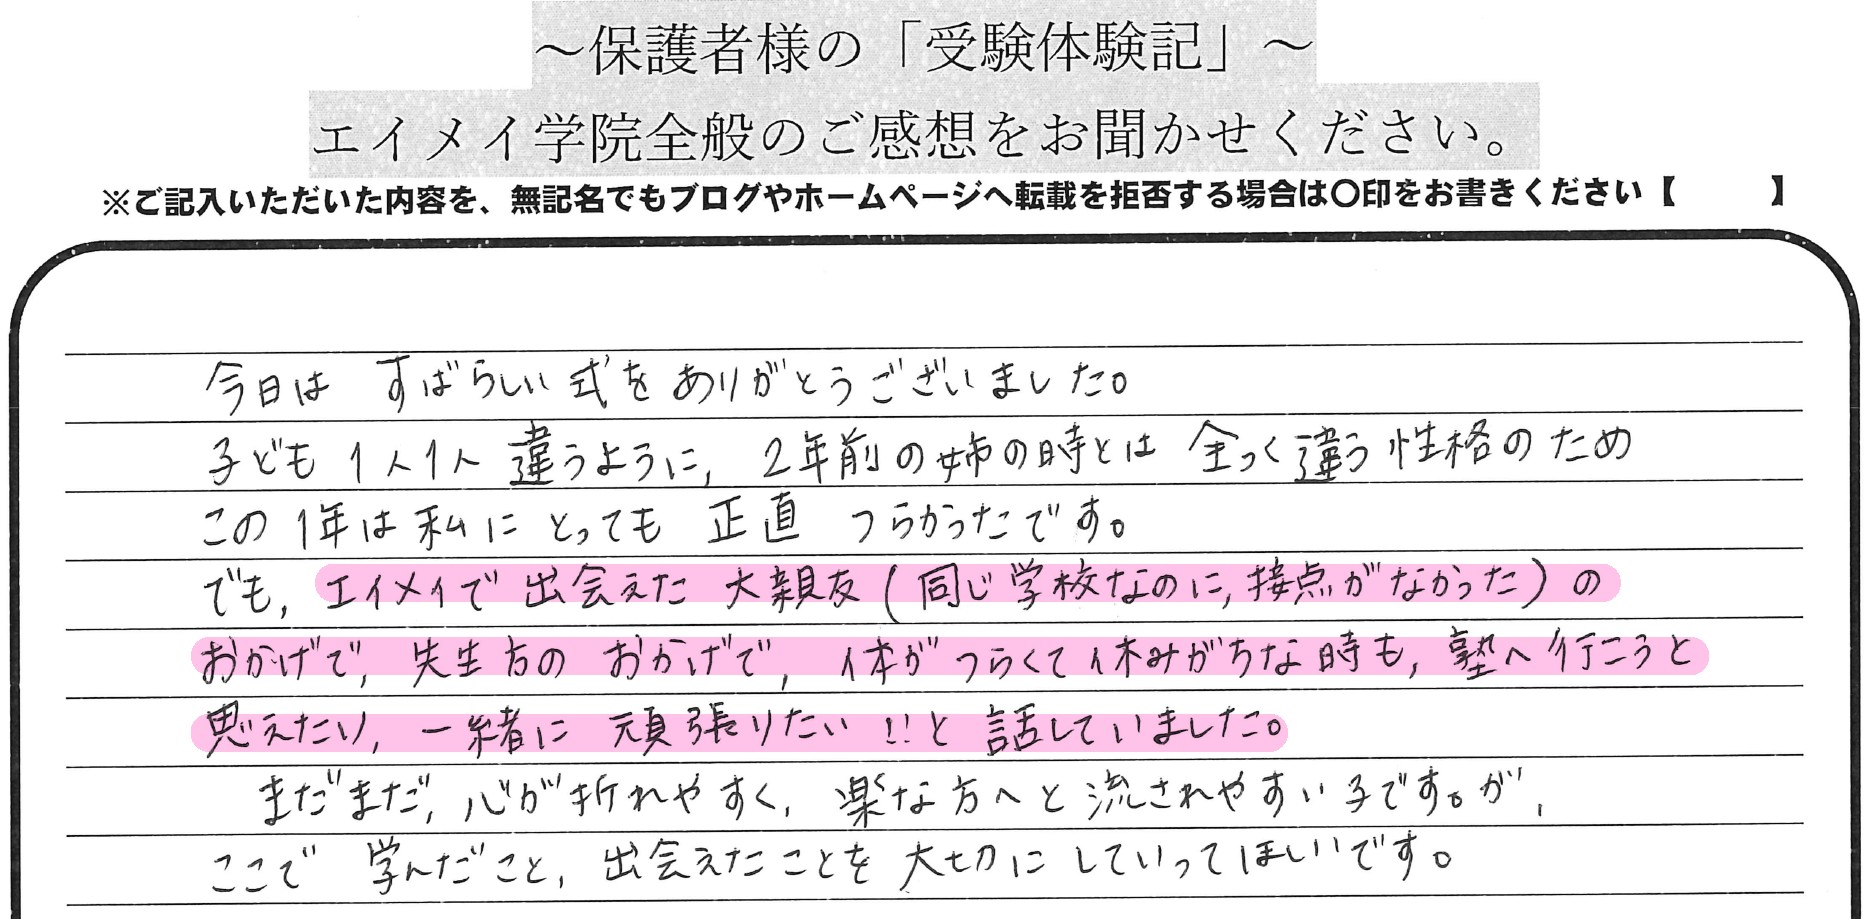 ～保護者様の「受験体験記」～
エイメイ学院全般のご感想をお聞かせください。
※ご記入いただいた内容を、無記名でもブログやホームページへ転載を拒否する場合は〇印をお書きください【　　　】
今日は すばらしい式を ありがとうございました。
子ども 1人1人 違うように, 2年前の姉の時とは 全っく違う 性格のため
この 1年は 私に とっても 正直 つらかったです。
でも, エイメイで 出会えた 大親友 (同じ学校なのに, 接点がなかった) の
おかげで, 先生方の おかげで, 体が つらくて 休みがちな時も, 塾へ行こうと
思えたり, 一緒に 頑張りたい !! と 話していました。
まだまだ, 心が折れやすく, 楽な方へと 流されやすい子です。が,
ここで 学んだこと, 出会えたことを 大切に していってほしいです。